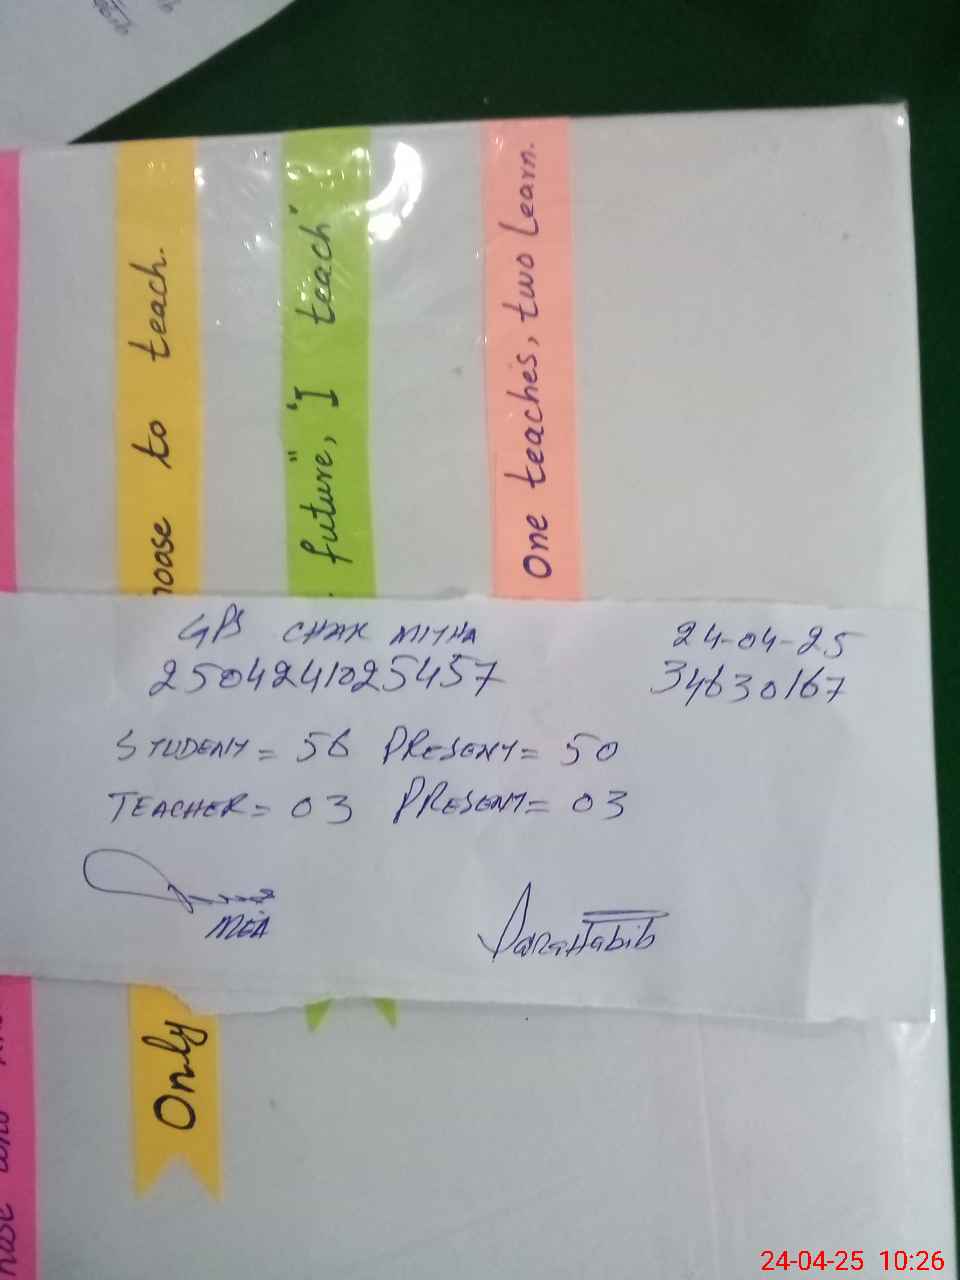 hoose to teach.
future," "I teach"
One teaches, two Learn.
GPS CHAK MITHA 24-04-25
2504241025457 34630167
STUDENT = 56 PRESENT = 50
TEACHER = 03 PRESENT = 03
MEA
SanaHabib
Only
24-04-25 10:26